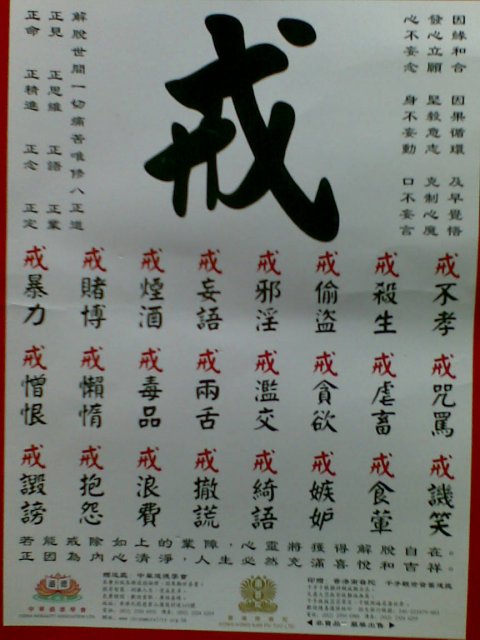 因緣和合 因果循環 及早覺悟
發心立願 堅毅意志 克制心魔
心不妄念 身不妄動 口不妄言
戒
解脫世間一切痛苦唯修八正道
正見 正思維 正語 正業
正命 正精進 正念 正定
戒不孝
戒殺生
戒偷盜
戒邪淫
戒妄語
戒煙酒
戒賭博
戒暴力
戒咒罵
戒虐畜
戒貪欲
戒濫交
戒兩舌
戒毒品
戒懶惰
戒憎恨
戒譏笑
戒食葷
戒嫉妒
戒綺語
戒撤謊
戒浪費
戒抱怨
戒譭謗
若能戒除如上的業障，心靈將獲得解脫自在。
正因為內心清淨，人生必然圓滿喜悅和吉祥。
道德
中華道德學會